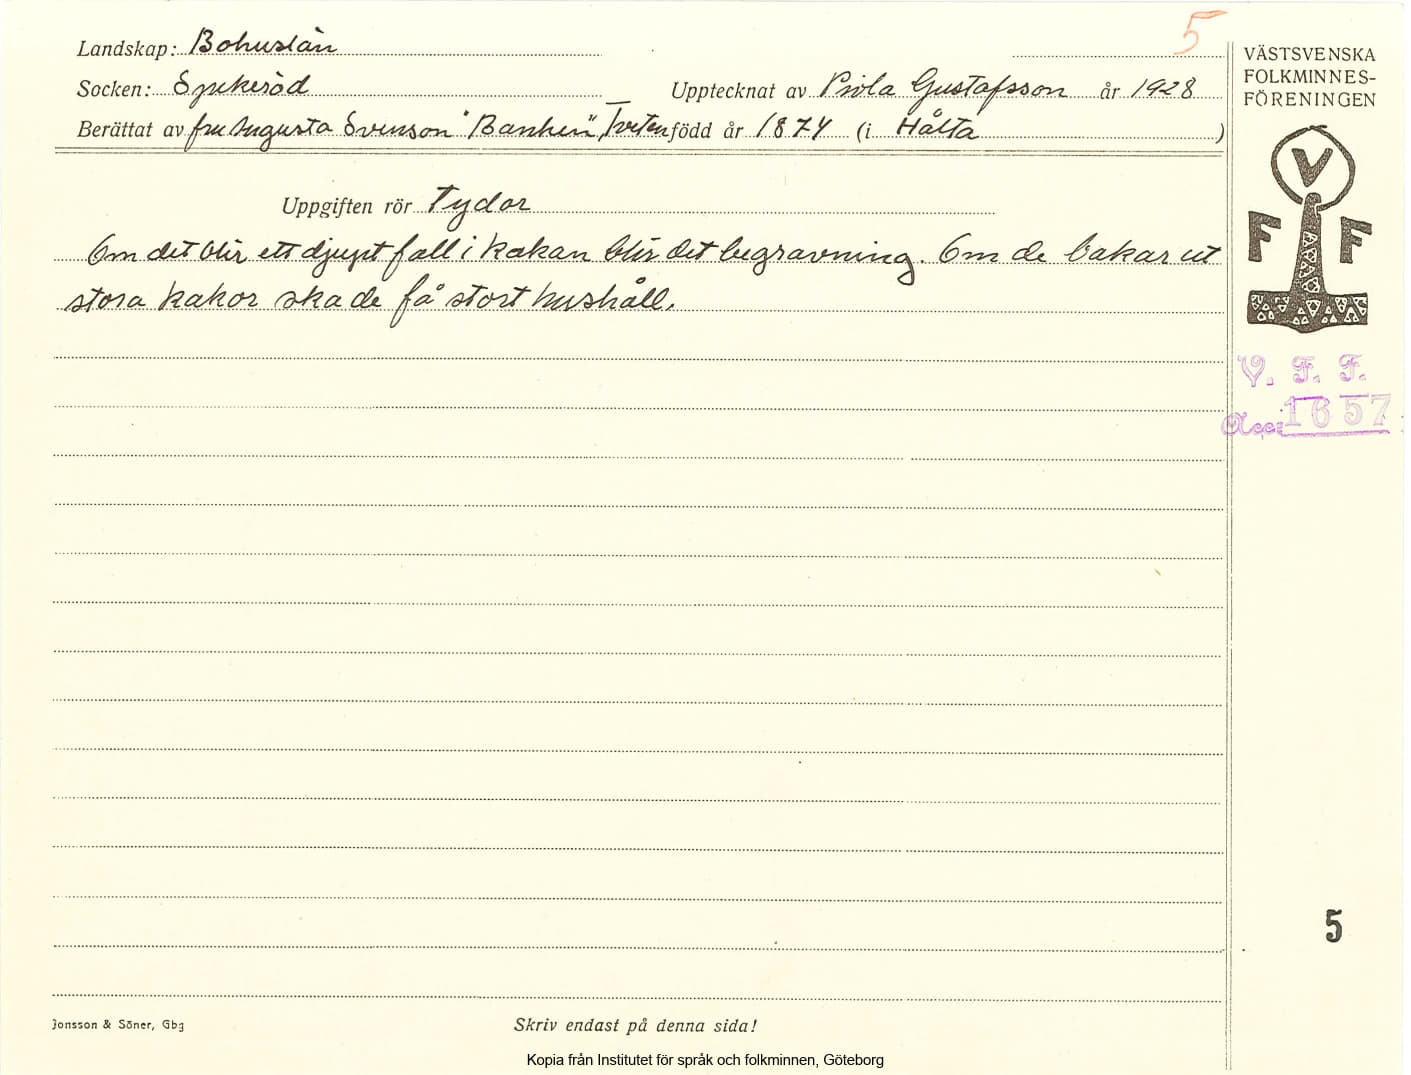 5
Landskap: Bohuslän
Socken: Spekeröd
Upptecknat av Viola Gustafsson år 1928
Berättat av fru Augusta Svenson "Banken", Tveten född år 1874 (i Hålta )
Uppgiften rör Tydor
Om det blir ett djupt fall i kakan blir det begravning. Om de bakar ut
stora kakor ska de få stort hushåll.
VÄSTSVENSKA
FOLKMINNES-
FÖRENINGEN
V
F F
V. F. F.
Acc: 1657
5
Jonsson & Söner, Gbg
Skriv endast på denna sida!
Kopia från Institutet för språk och folkminnen, Göteborg